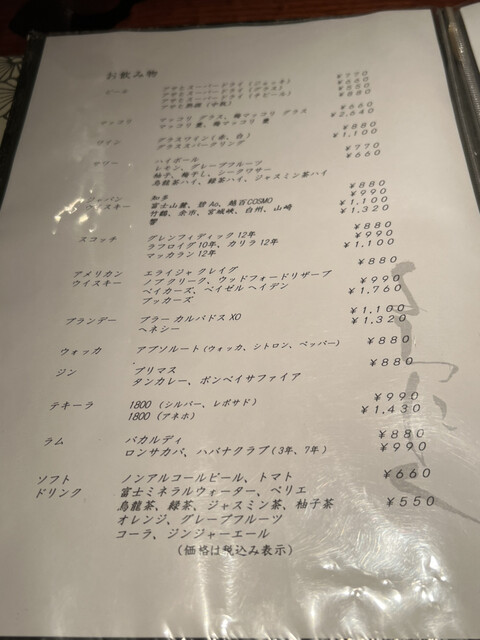 お飲み物
ビール アサヒスーパードライ (ジョッキ) ¥770
アサヒスーパードライ (グラス) ¥660
アサヒスーパードライ (チビール) ¥550
アサヒ熟撰 (中瓶) ¥880
マッコリ マッコリ グラス、梅マッコリ グラス ¥660
マッコリ 壷、梅マッコリ 壷 ¥2,640
ワイン グラスワイン (赤、白) ¥880
グラススパークリング ¥1,100
サワー ハイボール ¥770
レモン、グレープフルーツ ¥660
柚子、梅干し、シークワサー
烏龍茶ハイ、緑茶ハイ、ジャスミン茶ハイ
ジャパン 知多 ¥880
ウイスキー 富士山麓、碧Ao、越百COSMO ¥990
竹鶴、余市、宮城峡、白州、山崎 ¥1,100
響 ¥1,320
スコッチ グレンフィディック 12年 ¥880
ラフロイグ 10年、カリラ 12年 ¥990
マッカラン 12年 ¥1,100
アメリカン エライジャ クレイグ ¥880
ウイスキー ノブ クリーク、ウッドフォードリザーブ
ベイカーズ、ベイゼル ヘイデン ¥990
ブッカーズ ¥1,760
ブランデー ブラー カルバドス XO ¥1,100
ヘネシー ¥1,320
ウォッカ アブソルート (ウォッカ、シトロン、ペッパー) ¥880
ジン プリマス ¥880
タンカレー、ボンベイサファイア
テキーラ 1800 (シルバー、レポサド) ¥990
1800 (アネホ) ¥1,430
ラム バカルディ ¥880
ロンサカパ、ハバナクラブ (3年、7年) ¥990
ソフト ノンアルコールビール、トマト ¥660
ドリンク 富士ミネラルウォーター、ペリエ
烏龍茶、緑茶、ジャスミン茶、柚子茶 ¥550
オレンジ、グレープフルーツ
コーラ、ジンジャーエール
(価格は税込み表示)